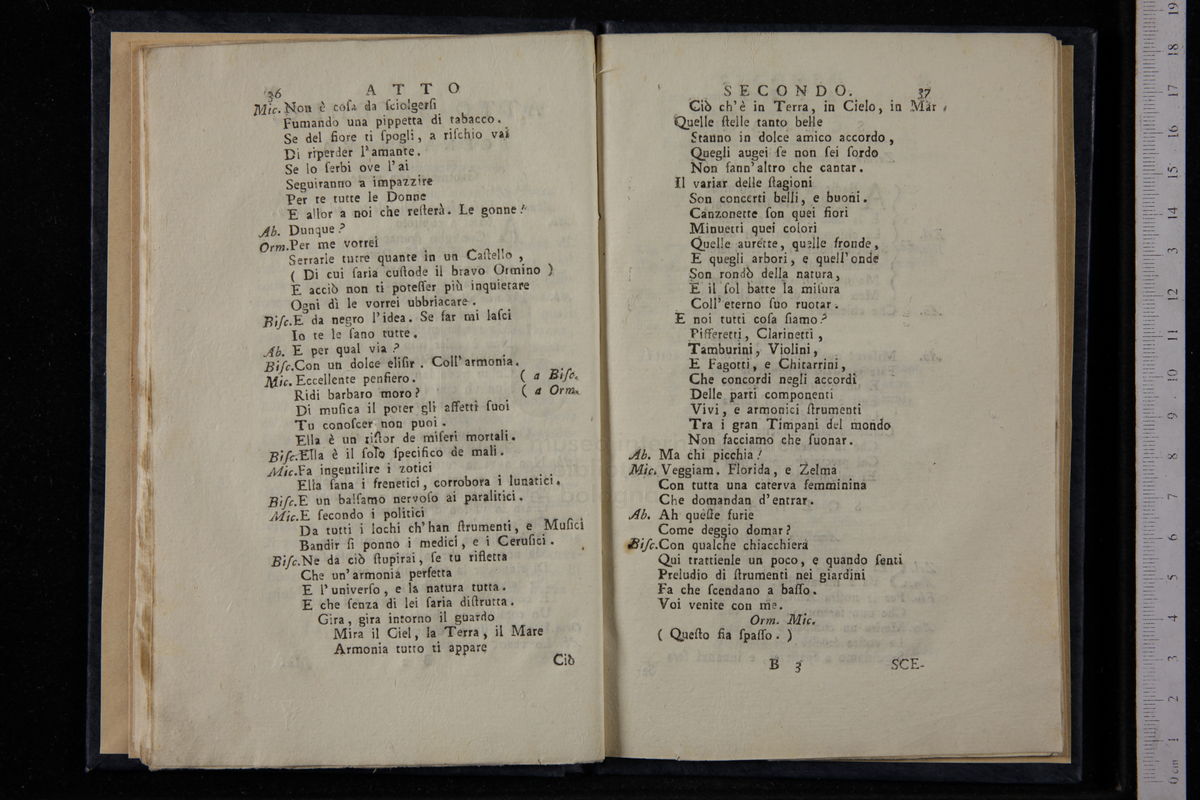 36 ATTO
Mic. Non è coſa da ſciolgerſi
Fumando una pippetta di tabacco.
Se del fiore ti ſpogli, a riſchio vai
Di riperder l'amante.
Se lo ſerbi ove l'ai
Seguiranno a impazzire
Per te tutte le Donne
E allor a noi che reſterà. Le gonne!
Ab. Dunque?
Orm. Per me vorrei
Serrarle tutte quante in un Caſtello,
( Di cui ſaria cuſtode il bravo Ormino )
E acciò non ti poteſſer più inquietare
Ogni dì le vorrei ubbriacare.
Biſc. E da negro l'idea. Se far mi laſci
Io te le ſano tutte.
Ab. E per qual via?
Biſc. Con un dolce eliſir. Coll'armonia.
Mic. Eccellente penſiero. ( a Biſc.
Ridi barbaro moro? ( a Orm.
Di muſica il poter gli affetti ſuoi
Tu conoſcer non puoi.
Ella è un riſtor de miſeri mortali.
Biſc. Ella è il ſolo ſpecifico de mali.
Mic. Fa ingentilire i zotici
Ella ſana i frenetici, corrobora i lunatici.
Biſc. E un balſamo nervoſo ai paralitici.
Mic. E ſecondo i politici
Da tutti i lochi ch'han ſtrumenti, e Muſici
Bandir ſi ponno i medici, e i Ceruſici.
Biſc. Ne da ciò ſtupirai, ſe tu rifletta
Che un'armonia perfetta
E l'univerſo, e la natura tutta.
E che ſenza di lei ſaria diſtrutta.
Gira, gira intorno il guardo
Mira il Ciel, la Terra, il Mare
Armonia tutto ti appare
Ciò
SECONDO. 37
Ciò ch'è in Terra, in Cielo, in Mar
Quelle ſtelle tanto belle
Stanno in dolce amico accordo,
Quegli augei ſe non ſei ſordo
Non fann'altro che cantar.
Il variar delle ſtagioni
Son concerti belli, e buoni.
Canzonette ſon quei fiori
Minuetti quei colori
Quelle aurette, quelle fronde,
E quegli arbori, e quell'onde
Son rondò della natura,
E il ſol batte la miſura
Coll'eterno ſuo ruotar.
E noi tutti coſa ſiamo?
Pifferetti, Clarinetti,
Tamburini, Violini,
E Fagotti, e Chitarrini,
Che concordi negli accordi
Delle parti componenti
Vivi, e armonici ſtrumenti
Tra i gran Timpani del mondo
Non facciamo che ſuonar.
Ab. Ma chi picchia!
Mic. Veggiam. Florida, e Zelma
Con tutta una caterva femminina
Che domandan d'entrar.
Ab. Ah queſte furie
Come deggio domar?
Biſc. Con qualche chiacchiera
Qui trattienle un poco, e quando ſenti
Preludio di ſtrumenti nei giardini
Fa che ſcendano a baſſo.
Voi venite con me.
Orm. Mic.
( Queſto ſia ſpaſſo. )
B 3 SCE-